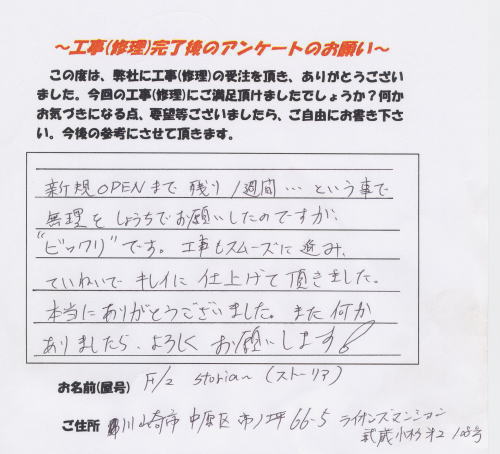 ～工事(修理)完了後のアンケートのお願い～
この度は、弊社に工事(修理)の受注を頂き、ありがとうござい
ました。今回の工事(修理)にご満足頂けましたでしょうか？何か
お気づきになる点、要望等ございましたら、ご自由にお書き下さ
い。今後の参考にさせて頂きます。
新規OPENまで残り1週間…という事で
無理をしょうちでお願いしたのですが、
"ビックリ"です。工事もスムーズに進み、
ていねいでキレイに仕上げて頂きました。
本当にありがとうございました。また何か
ありましたら、よろしくお願いします
お名前(屋号) F/2 storia~ (ストーリア)
ご住所 川崎市中原区市ノ坪66-5 ライオンズマンション
武蔵小杉第2 108号